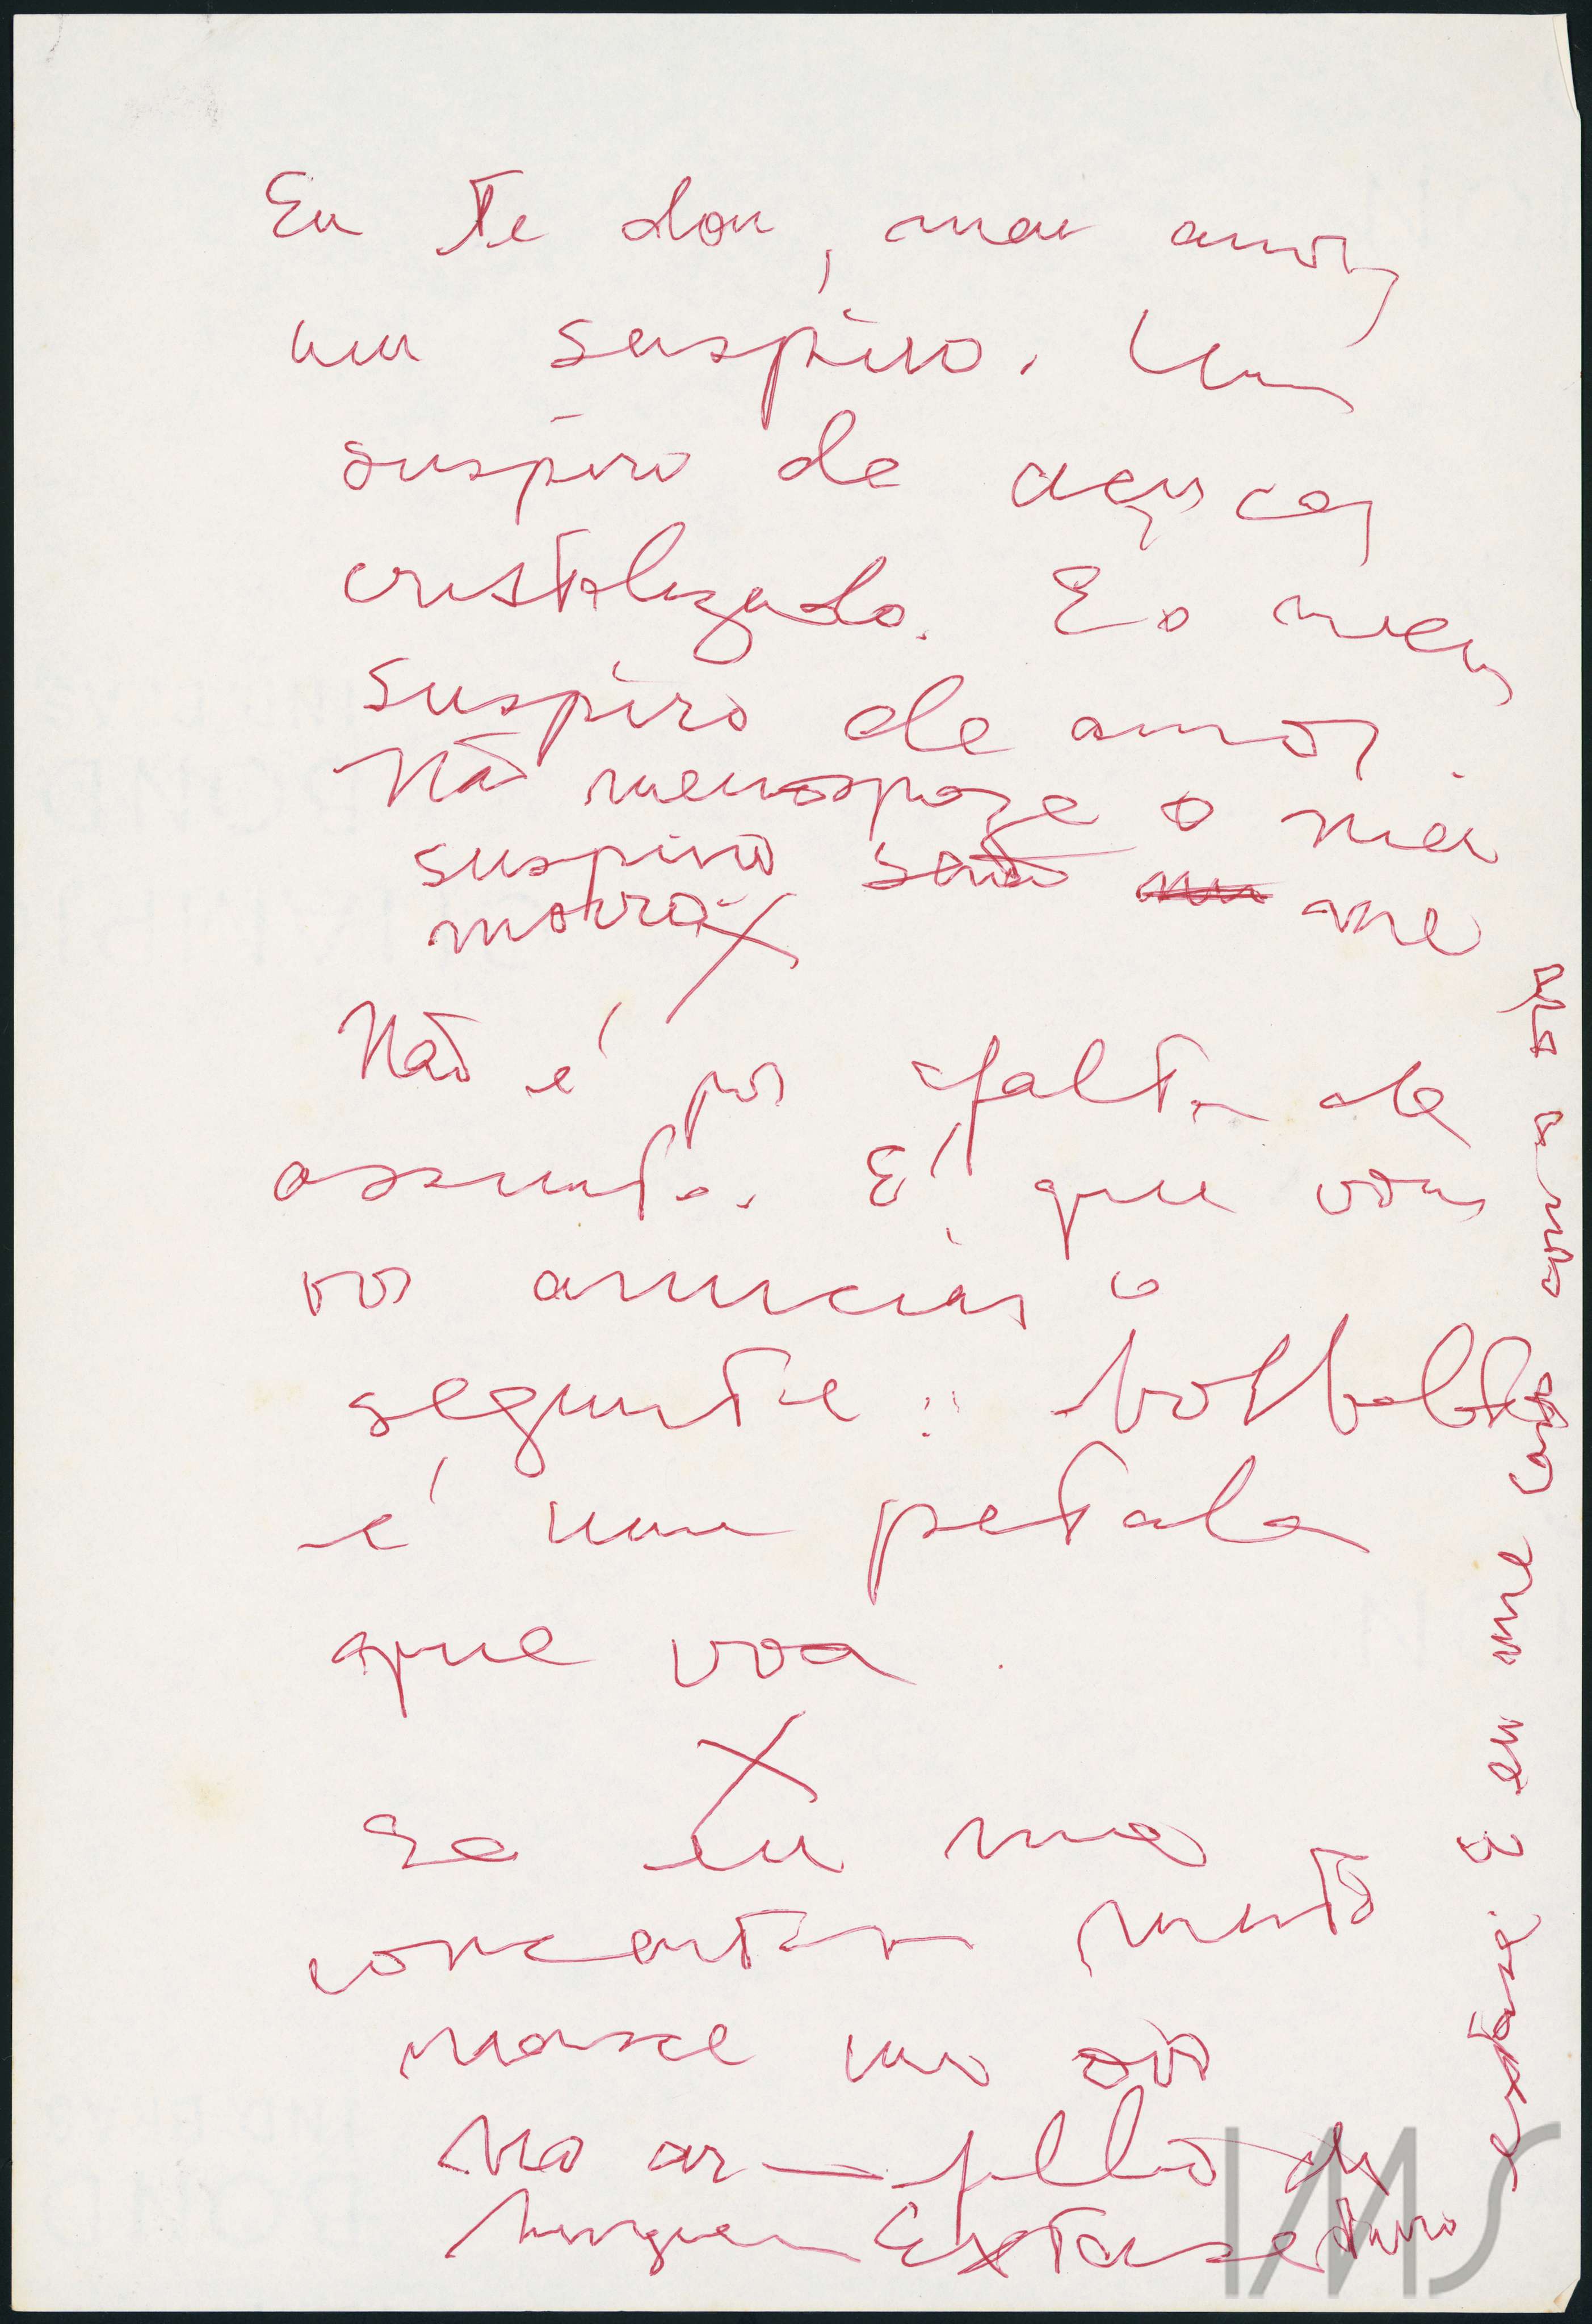 Eu te dou, meu amor,
um suspiro. Um
suspiro de açucar
cristalizado. É o meu
suspiro de amor.
Não menospreze o meu
suspiro senão me
morro.
X
Não é por falta de
assunto. É que vou
vos anunciar o
seguinte: borboleta
é uma petala
que voa.
X
Se eu me
concentrar muito
nasce um ovo
no ar — filho de
ninguem Extase
extase. E eu me caso com a
IMS